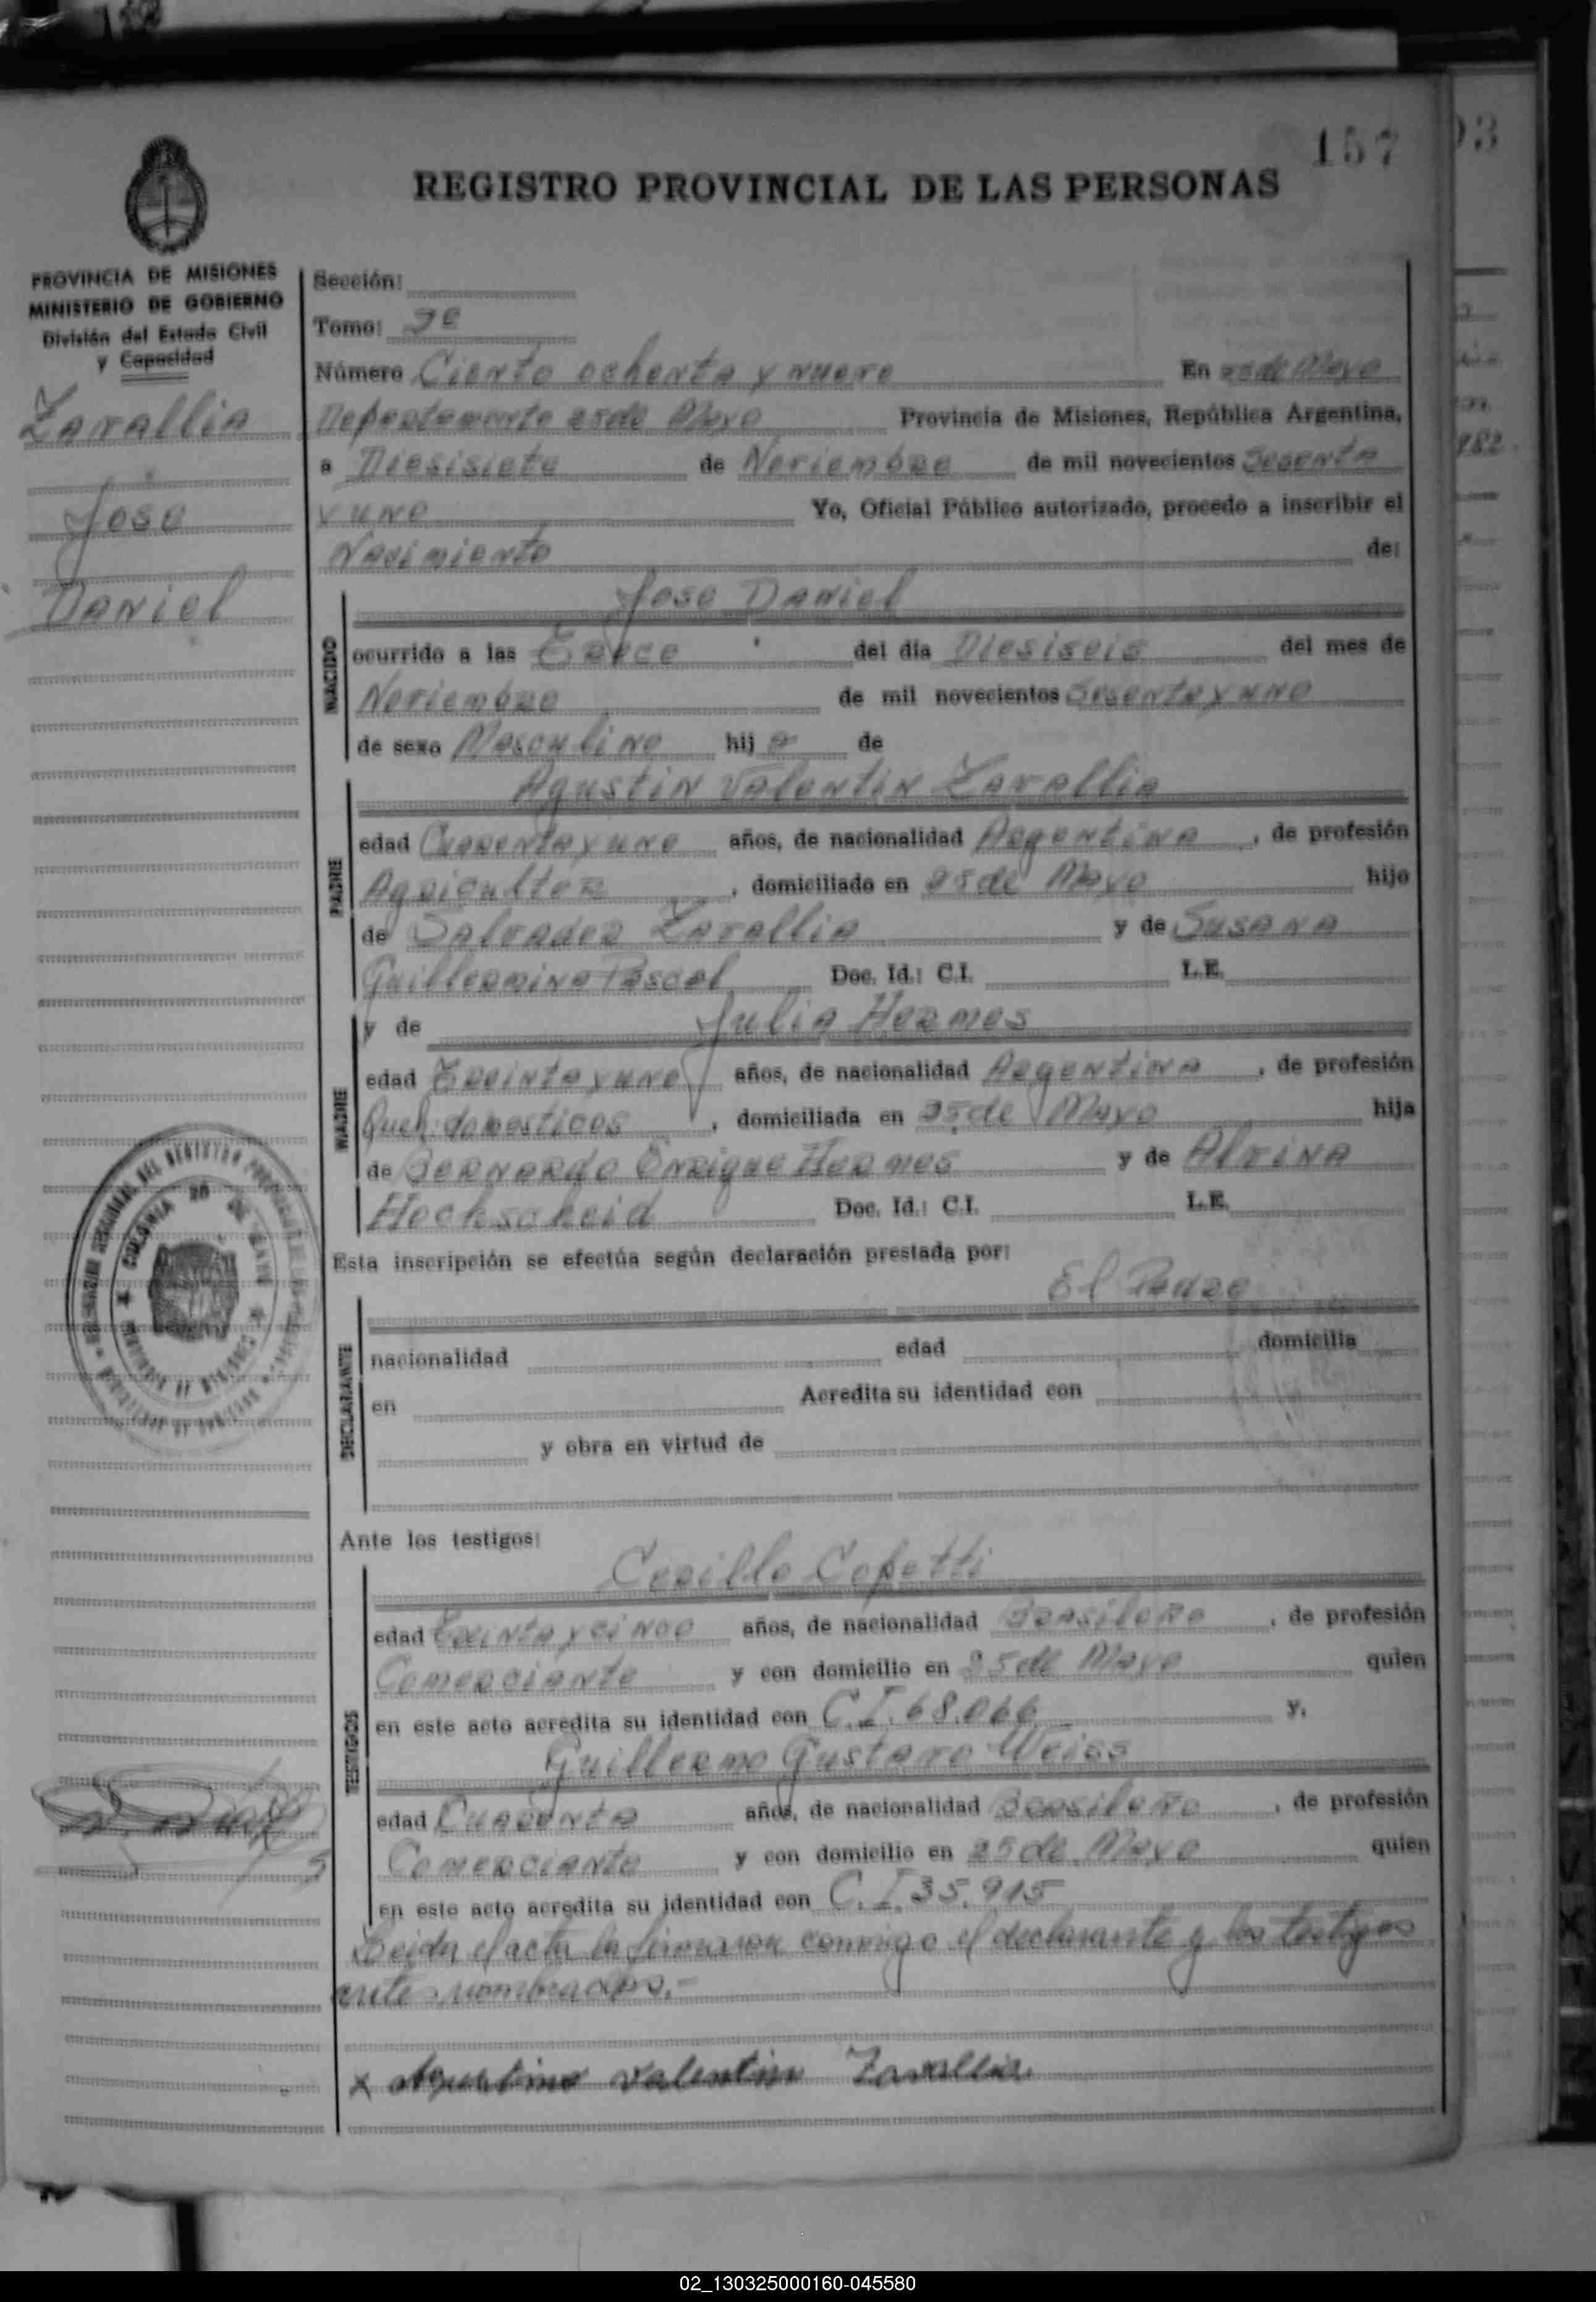 157
REGISTRO PROVINCIAL DE LAS PERSONAS
PROVINCIA DE MISIONES
MINISTERIO DE GOBIERNO
División del Estado Civil
y Capacidad
Zavallia
Jose
Daniel
Sección:
Tomo: 2º
Número Ciento ochenta y nueve En 25 de Mayo
Departamento 25 de Mayo Provincia de Misiones, República Argentina,
a Diesisiete de Noviembre de mil novecientos Sesenta
y uno Yo, Oficial Público autorizado, procedo a inscribir el
Nacimiento de:
NACIDO
Jose Daniel
ocurrido a las Trece del día Diesiseis del mes de
Noviembre de mil novecientos Sesenta y uno
de sexo Masculino hij o de
PADRE
Agustin Valentin Zavallia
edad Cuarenta y uno años, de nacionalidad Argentina, de profesión
Agricultor, domiciliado en 25 de Mayo hijo
de Salvador Zavallia y de Susana
Guillermina Pascal Doc. Id.: C.I. L.E.
MADRE
y de Julia Hermes
edad Treinta y uno años, de nacionalidad Argentina, de profesión
Queh. domesticos, domiciliada en 25 de Mayo hija
de Bernardo Enrique Hermes y de Alvina
Hochscheid Doc. Id.: C.I. L.E.
Esta inscripción se efectúa según declaración prestada por:
El Padre
DECLARANTE
nacionalidad edad domicilia
en Acredita su identidad con
y obra en virtud de
Ante los testigos:
TESTIGOS
Cerillo Copetti
edad Treinta y cinco años, de nacionalidad Brasilero, de profesión
Comerciante y con domicilio en 25 de Mayo quien
en este acto acredita su identidad con C.I. 68.066 y,
Guillermo Gustavo Weiss
edad Cuarenta años, de nacionalidad Brasilero, de profesión
Comerciante y con domicilio en 25 de Mayo quien
en este acto acredita su identidad con C.I. 35.915
Leida el acta la firmaron conmigo el declarante y los testigos
ante nombrados.-
x Agustino Valentin Zavallia
02_130325000160-045580